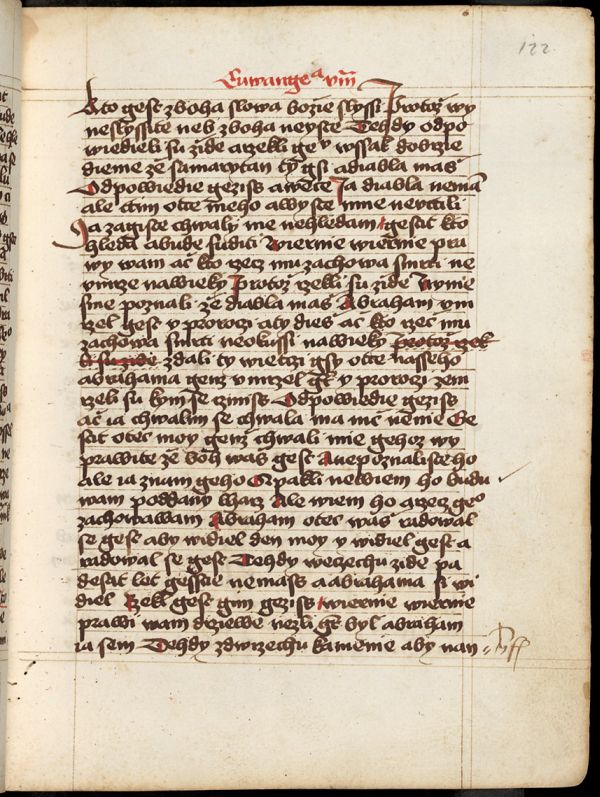 122
Ewange^a viii
A to gest z boha slowa bozie slyssi Protoz wy
neslyssite neb z boha neyste Tehdy odpo
wiedieli su zide a rzekli ge^v wssak dobrzie
dieme ze samarytan ty gsi a diabla mas
Odpowiedie geziss a wece Ja diabla nemā
ale ctim otce meho a wy ste mne neuctili
Ja zagiste chwaly me nehledam gestit kto
hleda a bude suditi Wiernie wiernie pra
wy wam ac kto rzecz mu zachowa smrti ne
vmrze na wieky Protoz rzekli su zide Nynie
sme poznali ze diabla mas Abraham vm
rzel gest y proroci a ty dies ac kto rzec mu
zachowa smrti neokussi na wieky protoz rzek
li su zide zdali ty wietczi gsy otce nasseho
abrahama genz vmrzel gt y prorozi zem
rzeli su kym se czinis Odpowiedie geziss
ac ia chwalim se chwala ma nic nenie Ge
stit otec moy genz chwali mie gehoz wy
prawite ze boh was gest A nepoznali ste ho
ale ia znam geho A pakli newiem ho budu
wam poddany lharz Ale wiem ho a rzecz ge^o
zachowawam Abraham otec was radowal
se gest aby widiel den moy y widiel gest a
radowal se gest Tehdy wecechu zide pa
desat let geste nemass a abrahama si wi
diel Rzekl gest gim geziss wiernie wiernie
prawi wam drziewe nezli gt byl abraham
ia sem Tehdy zdwizechu kamenie aby nan